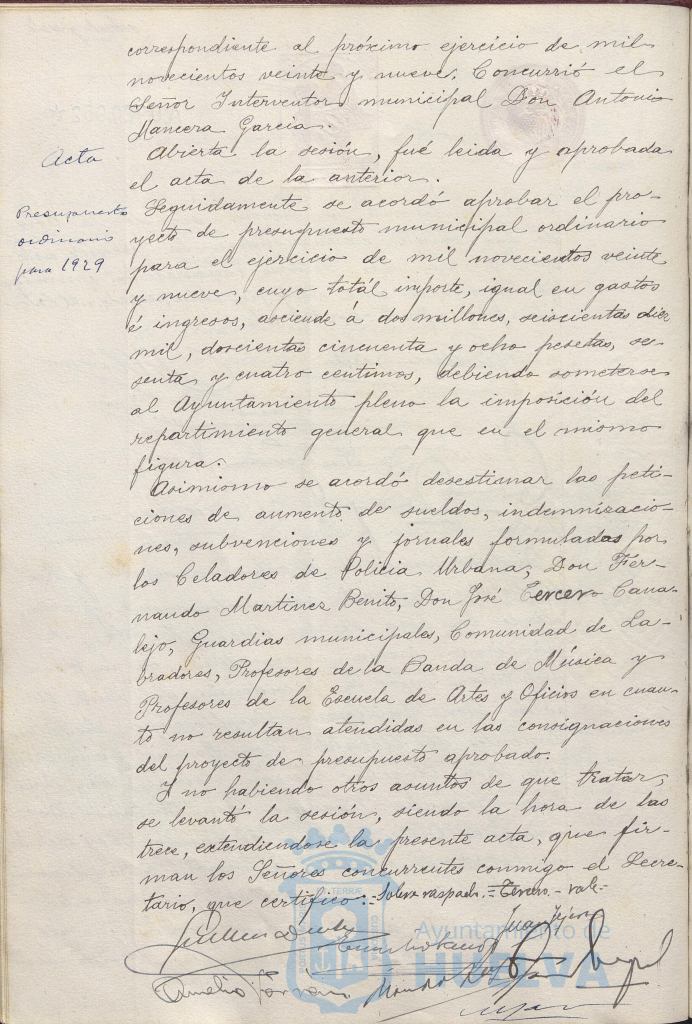 correspondiente al próximo ejercicio de mil
novecientos veinte y nueve. Concurrió el
Señor Interventor municipal Don Antonio
Mancera García.
Acta
Abierta la sesión, fué leida y aprobada
el acta de la anterior.
Presupuesto
ordinario
para 1929
Seguidamente se acordó aprobar el pro-
yecto de presupuesto municipal ordinario
para el ejercicio de mil novecientos veinte
y nueve, cuyo totál importe, igual en gastos
é ingresos, asciende á dos millones, seiscientas diez
mil, doscientas cincuenta y ocho pesetas, se-
senta y cuatro centimos, debiendo someterse
al Ayuntamiento pleno la imposición del
repartimiento general que en el mismo
figura.
Asimismo se acordó desestimar las peti-
ciones de aumento de sueldos, indemnizacio-
nes, subvenciones y jornales formuladas por
los Celadores de Policia Urbana, Don Fer-
nando Martinez Benito, Don José Tercero Cana-
lejo, Guardias municipales, Comunidad de La-
bradores, Profesores de la Banda de Música y
Profesores de la Escuela de Artes y Oficios en cuan-
to no resultan atendidas en las consignaciones
del proyecto de presupuesto aprobado.
Y no habiendo otros asuntos de que tratar,
se levantó la sesión, siendo la hora de las
trece, extendiendose la presente acta, que fir-
man los Señores concurrentes conmigo el Secre-
tario, que certifico.=Sobre raspado.=Tercero.-vale-
Ayuntamiento de
HUELVA